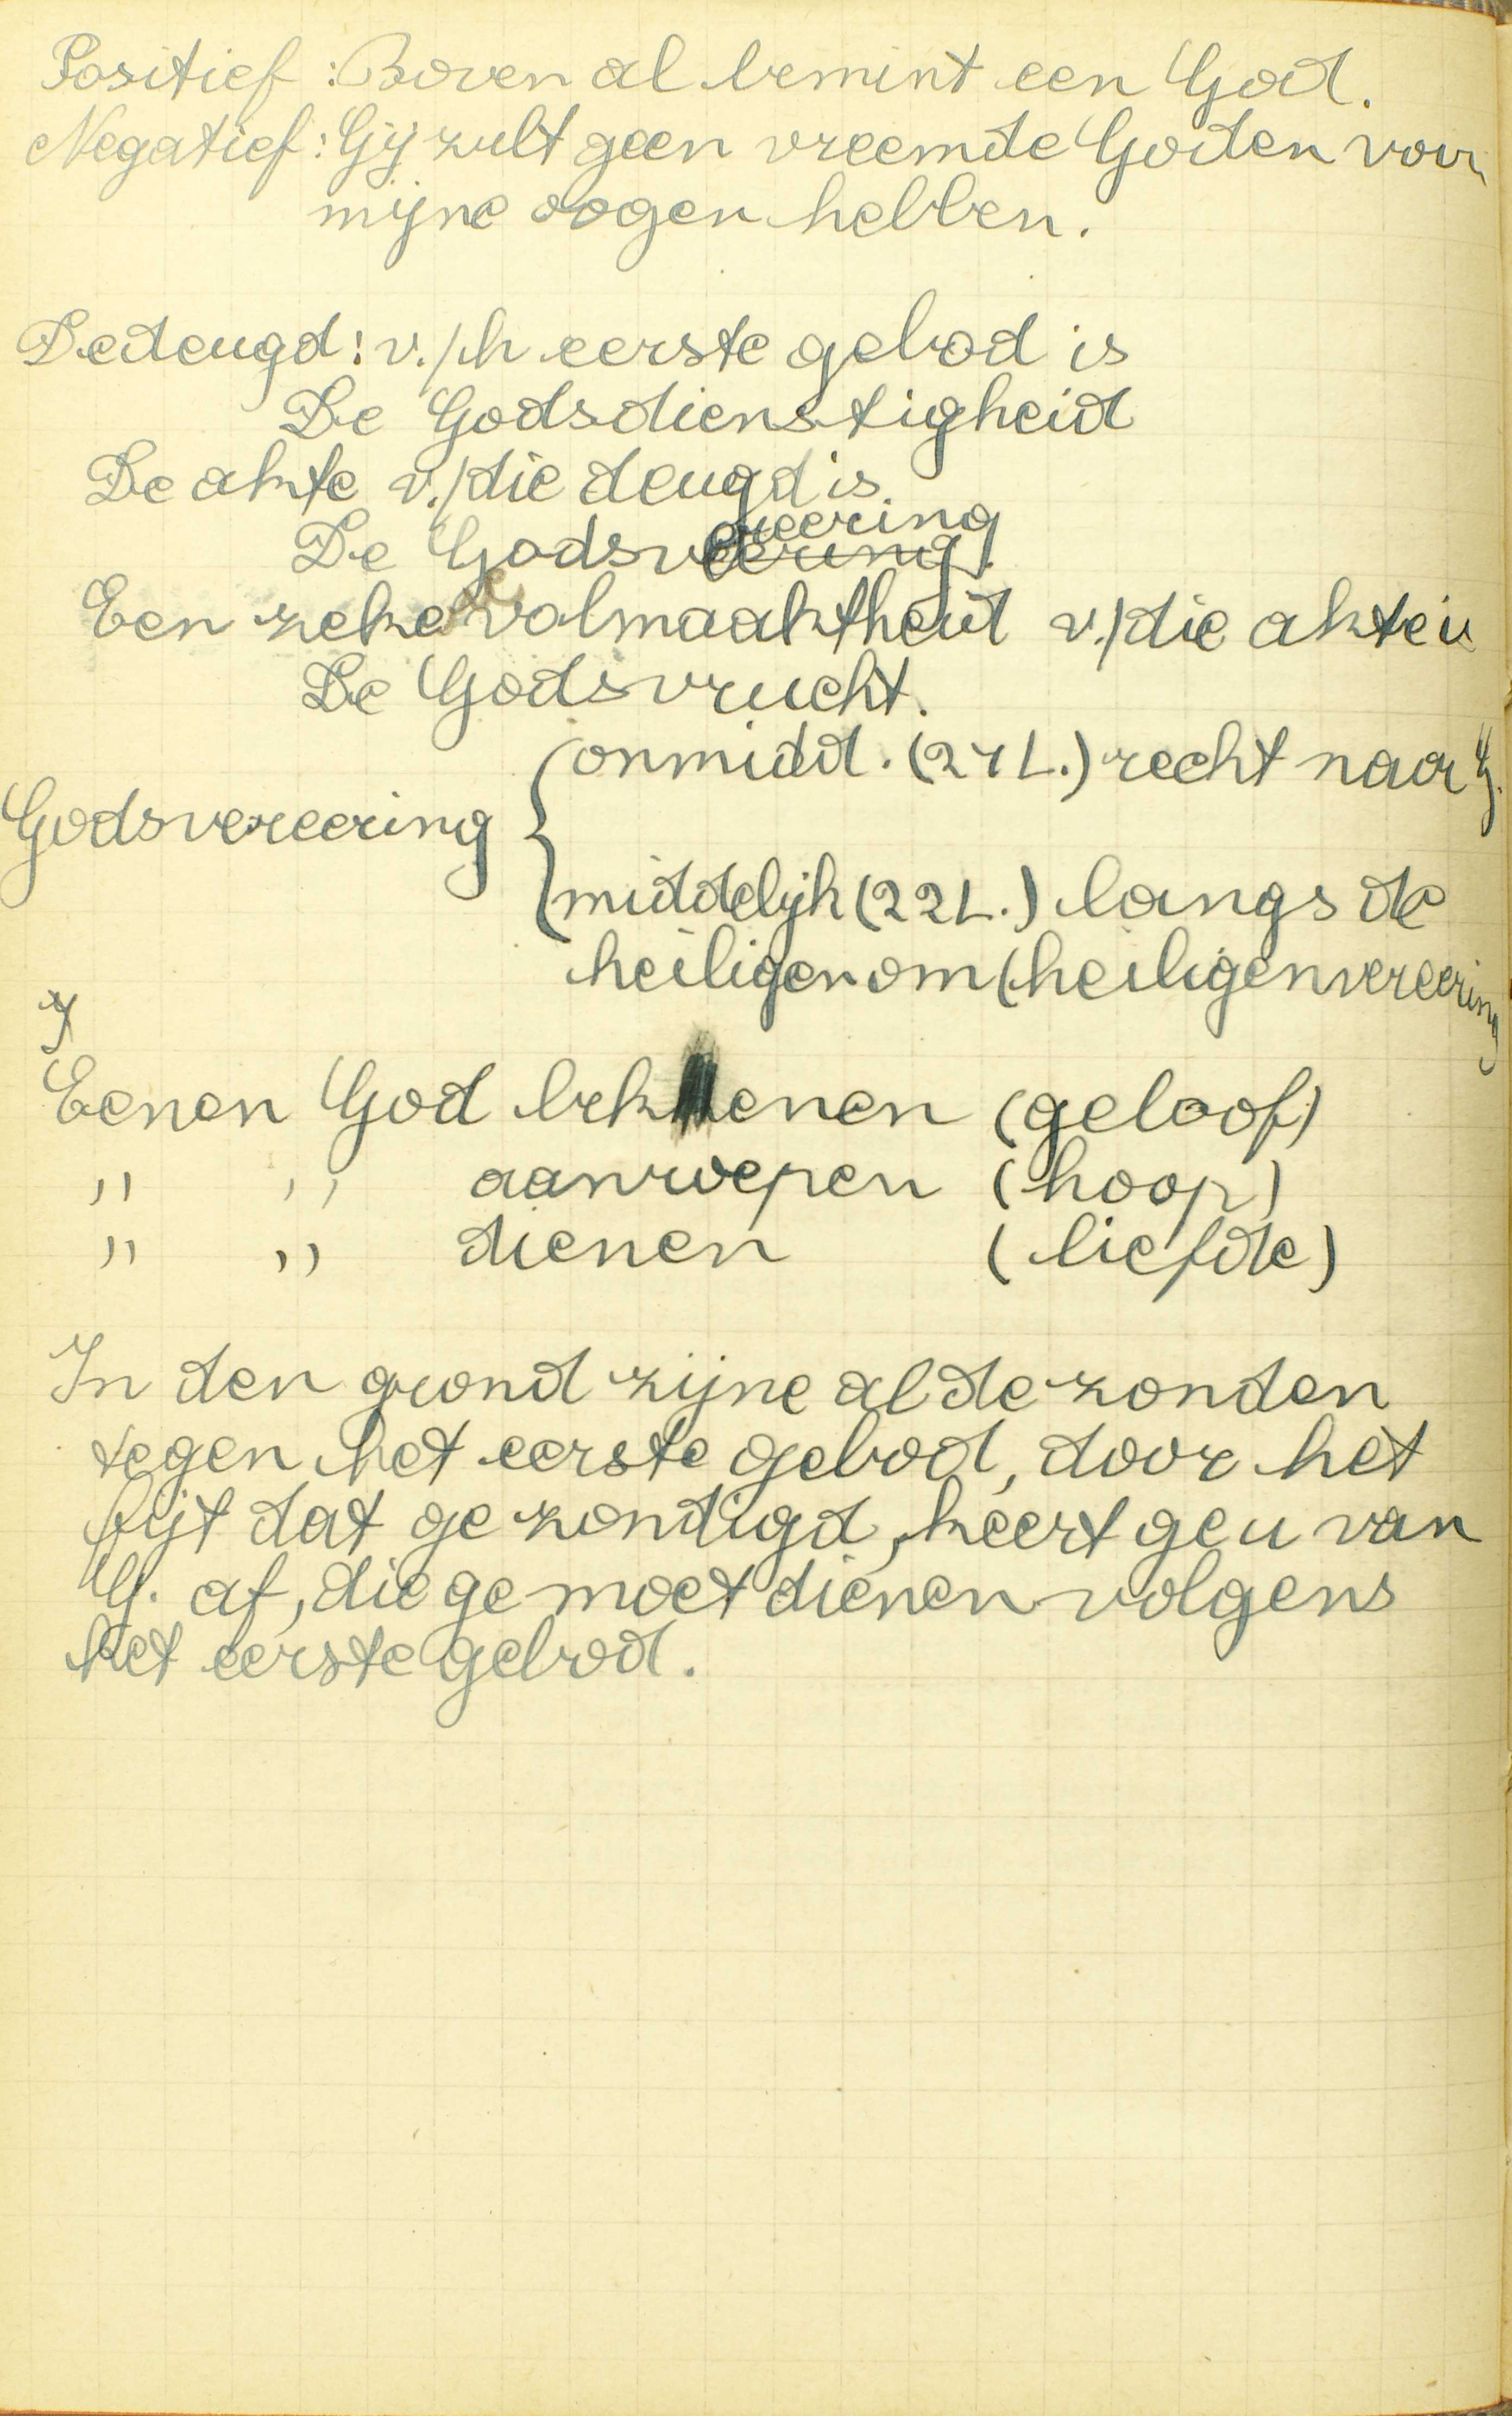 Positief : Boven al bemint een God.
Negatief : Gij zult geen vreemde Goden voor
mijne oogen hebben.
De deugd : v./h eerste gebod is
De Godsdienstigheid
De akte v./die deugd is
De Godsvereering
Een zekere volmaaktheid v./die akte is
De Godsvrucht.
onmidd. (21 L.) recht naar G.
Godsvereering {
middelijk (22 L.) langs de
heiligen om (heiligenvereering
I
Eenen God bekenen (geloof)
" " aanroepen (hoop)
" " dienen (liefde)
In den grond zijne al de zonden
tegen het eerste gebod, door het
fijt dat ge zondigd, keert ge u van
G. af, die ge moet dienen volgens
het eerste gebod.